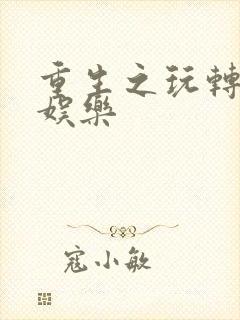 重生之玩轉
娛樂
寇小敏